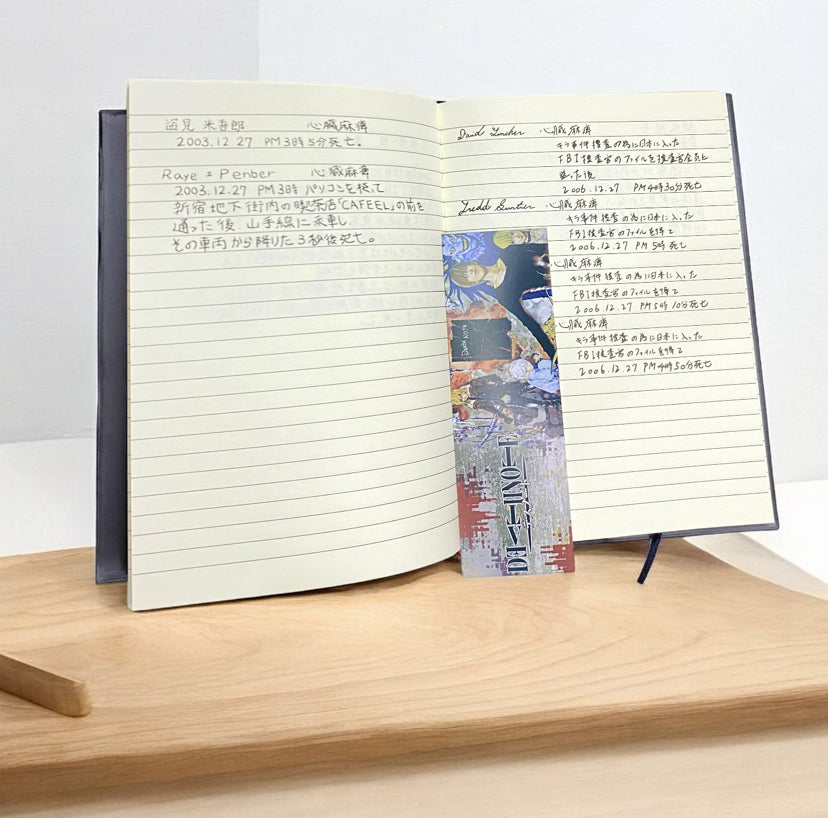 盗見 米吾郎 心臓麻痺
2003.12 27 PM3時5分死亡。
Raye = Penber 心臓麻痺
2003.12.27 PM3時 パソコンを使って
新宿地下街内の喫茶店「CAFEEL」の前を
通った後、山手線に乗車し、
その車両から降りた3秒後死亡。
心臓麻痺
キラ事件捜査の為に日本に入った
FBI捜査官のファイルを捜査官全員と
後
2006.12.27 PM4時30分死亡
心臓麻痺
キラ事件捜査の為に日本に入った
FBI捜査官のファイルを得て
2006.12.27 PM5時死亡
心臓麻痺
キラ事件捜査の為に日本に入った
FBI捜査官のファイルを得て
2006.12.27 PM5時10分死亡
心臓麻痺
キラ事件捜査の為に日本に入った
FBI捜査官のファイルを得て
2006.12.27 PM4時50分死亡
DEATH NOTE
DEATH NOTE